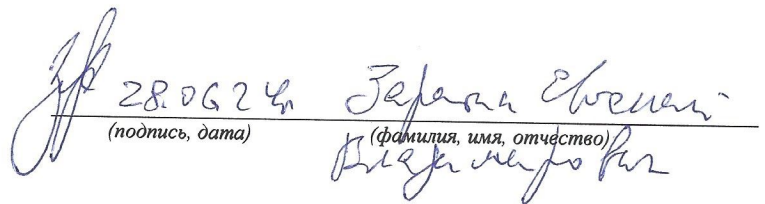 28.06.24г Евгений
(подпись, дата) (фамилия, имя, отчество)
Владимирович